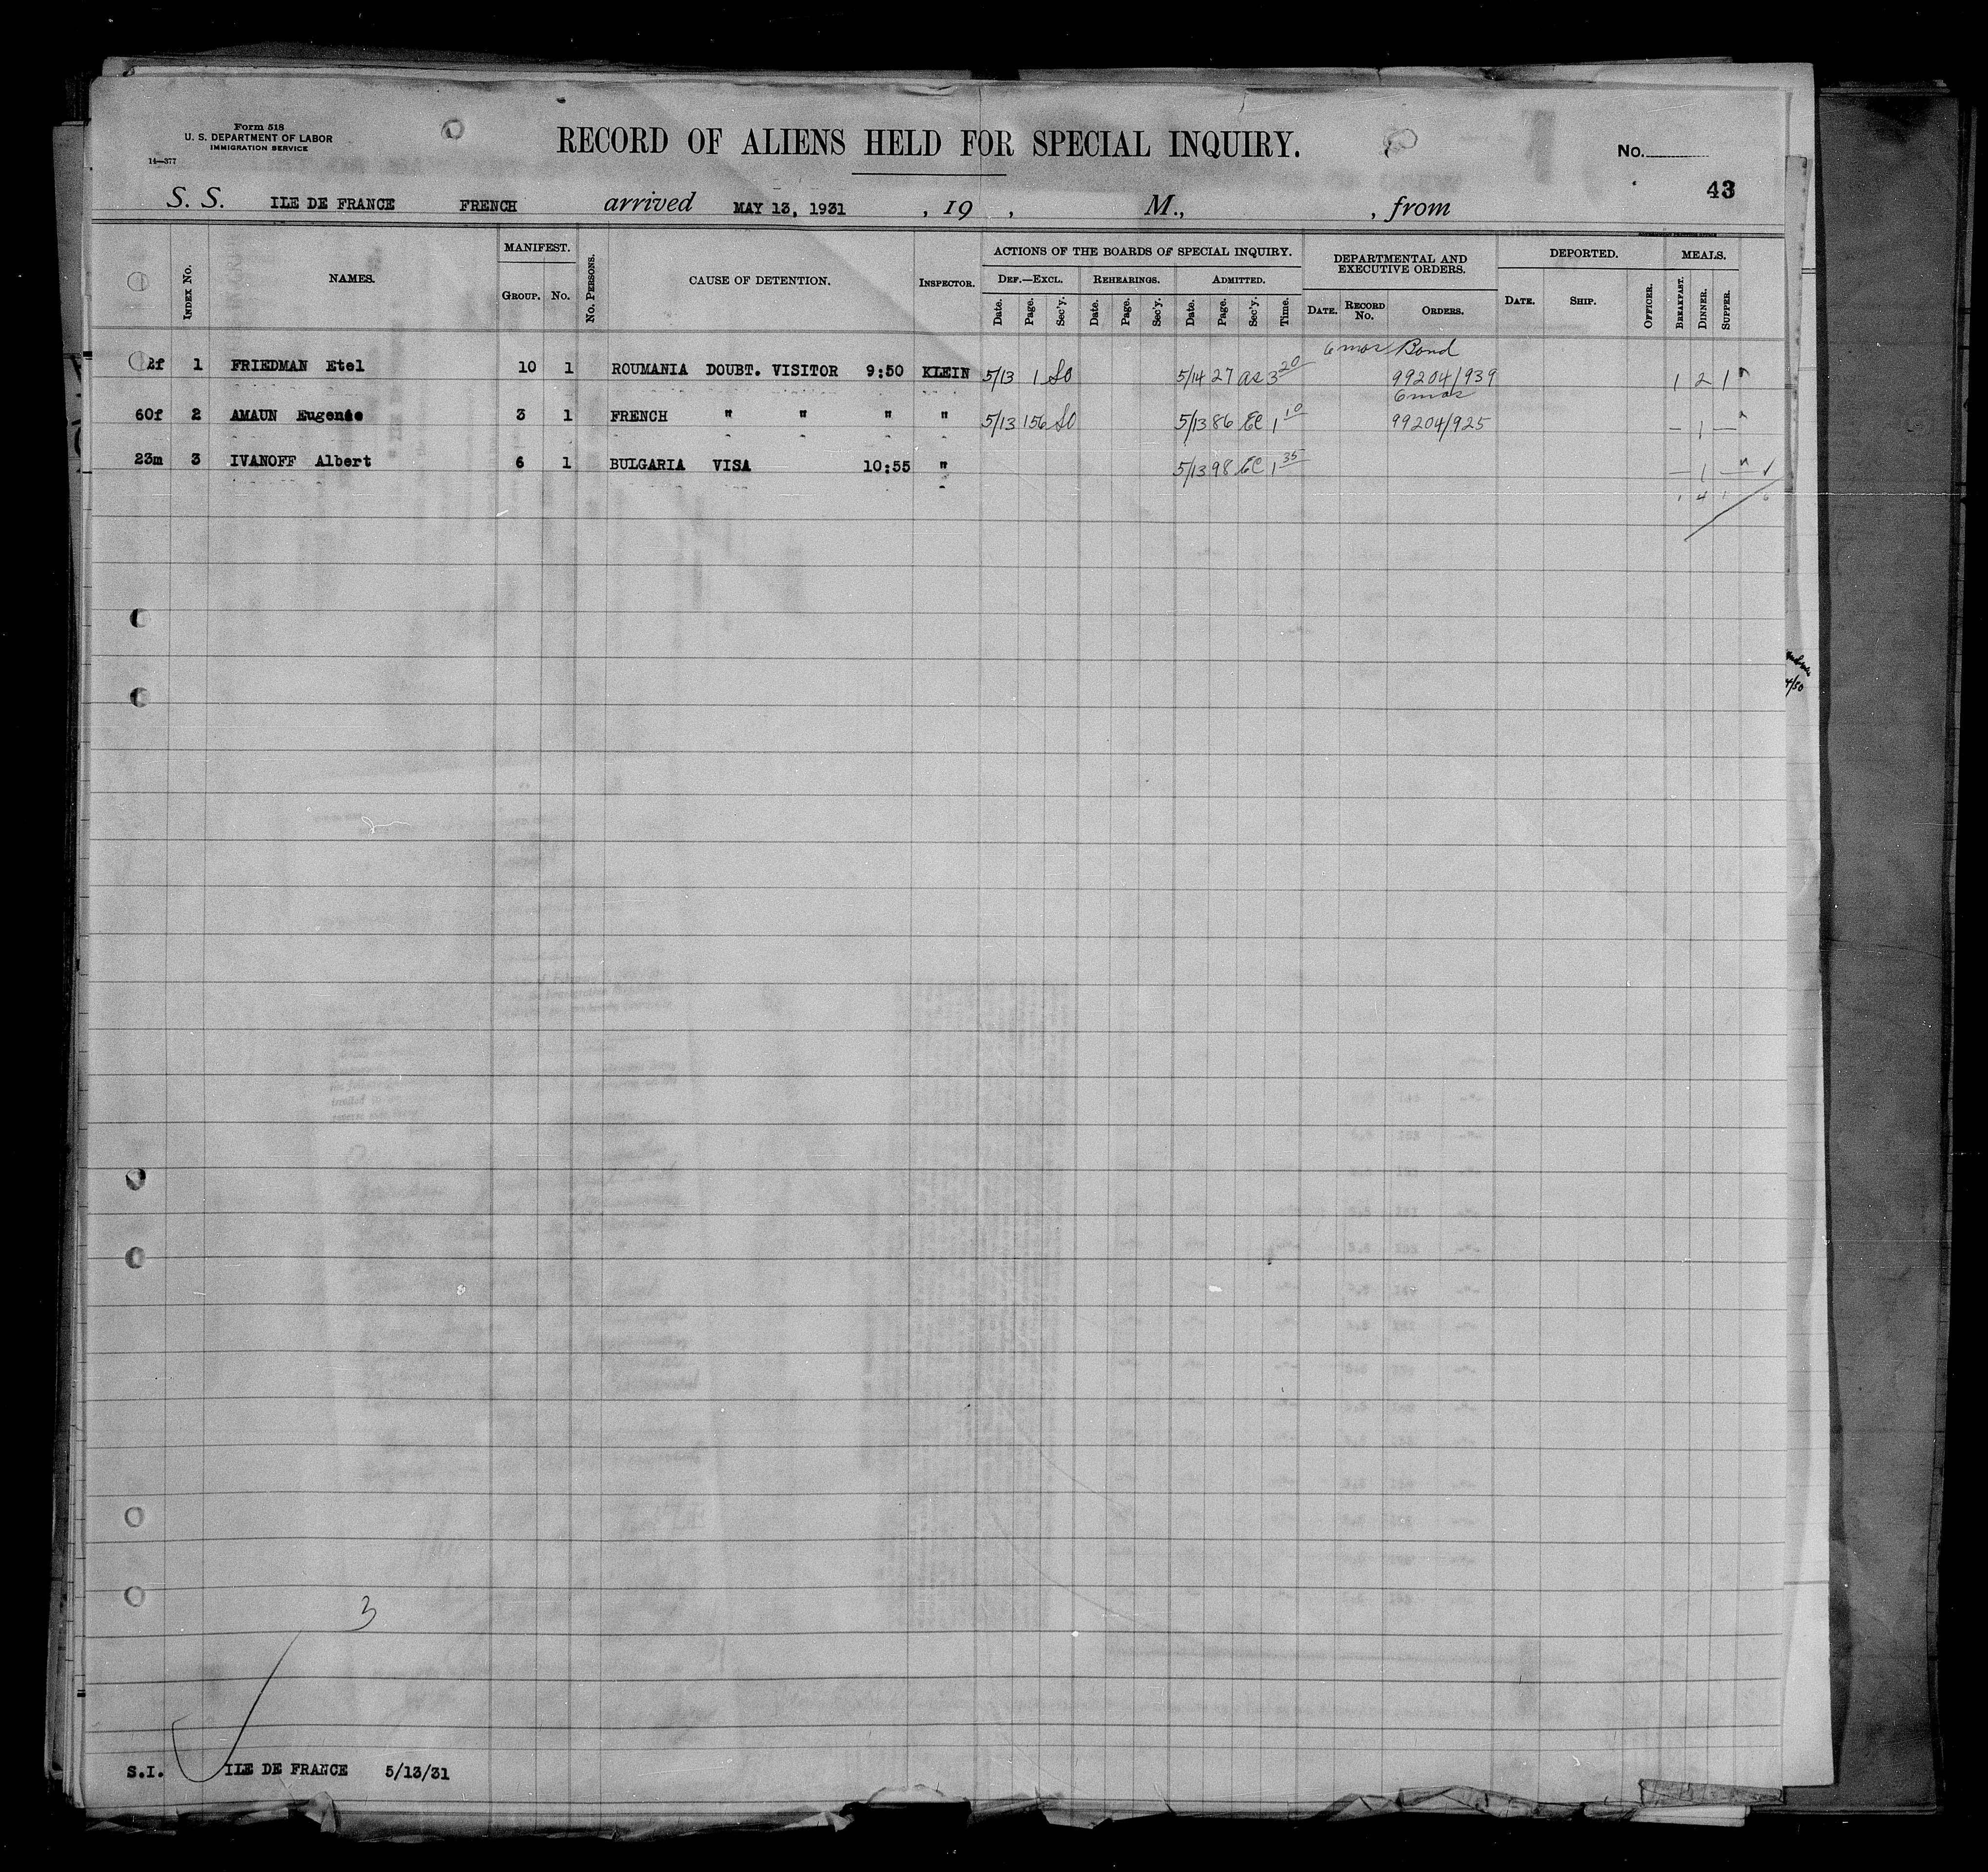 Form 518
U. S. DEPARTMENT OF LABOR
IMMIGRATION SERVICE
14—377
RECORD OF ALIENS HELD FOR SPECIAL INQUIRY.
No.
43
S. S. ILE DE FRANCE FRENCH arrived MAY 13, 1931 , 19 , M., , from
INDEX NO. NAMES. MANIFEST. GROUP. NO. NO. PERSONS. CAUSE OF DETENTION. INSPECTOR. ACTIONS OF THE BOARDS OF SPECIAL INQUIRY. DEPARTMENTAL AND EXECUTIVE ORDERS. DEPORTED. MEALS.
DEF.—EXCL. REHEARINGS. ADMITTED.
Date. Page. Sec'y. Date. Page. Sec'y. Date. Page. Sec'y. Time. DATE. RECORD NO. ORDERS. DATE. SHIP. OFFICER. BREAKFAST. DINNER. SUPPER.
6 mos Bond
1 FRIEDMAN Etel 10 1 ROUMANIA DOUBT. VISITOR 9:50 KLEIN 5/13 1 SO 5/14 27 as 3 20 99204/939 1 2 1
6 mos
60f 2 AMAUN Eugenie 3 1 FRENCH " " " " 5/13 156 SO 5/13 86 EC 1 10 99204/925 — 1 —
23m 3 IVANOFF Albert 6 1 BULGARIA VISA 10:55 " 5/13 98 EC 1 35 — 1 —
1 4 1 6
4/50
3
S.I. ILE DE FRANCE 5/13/31